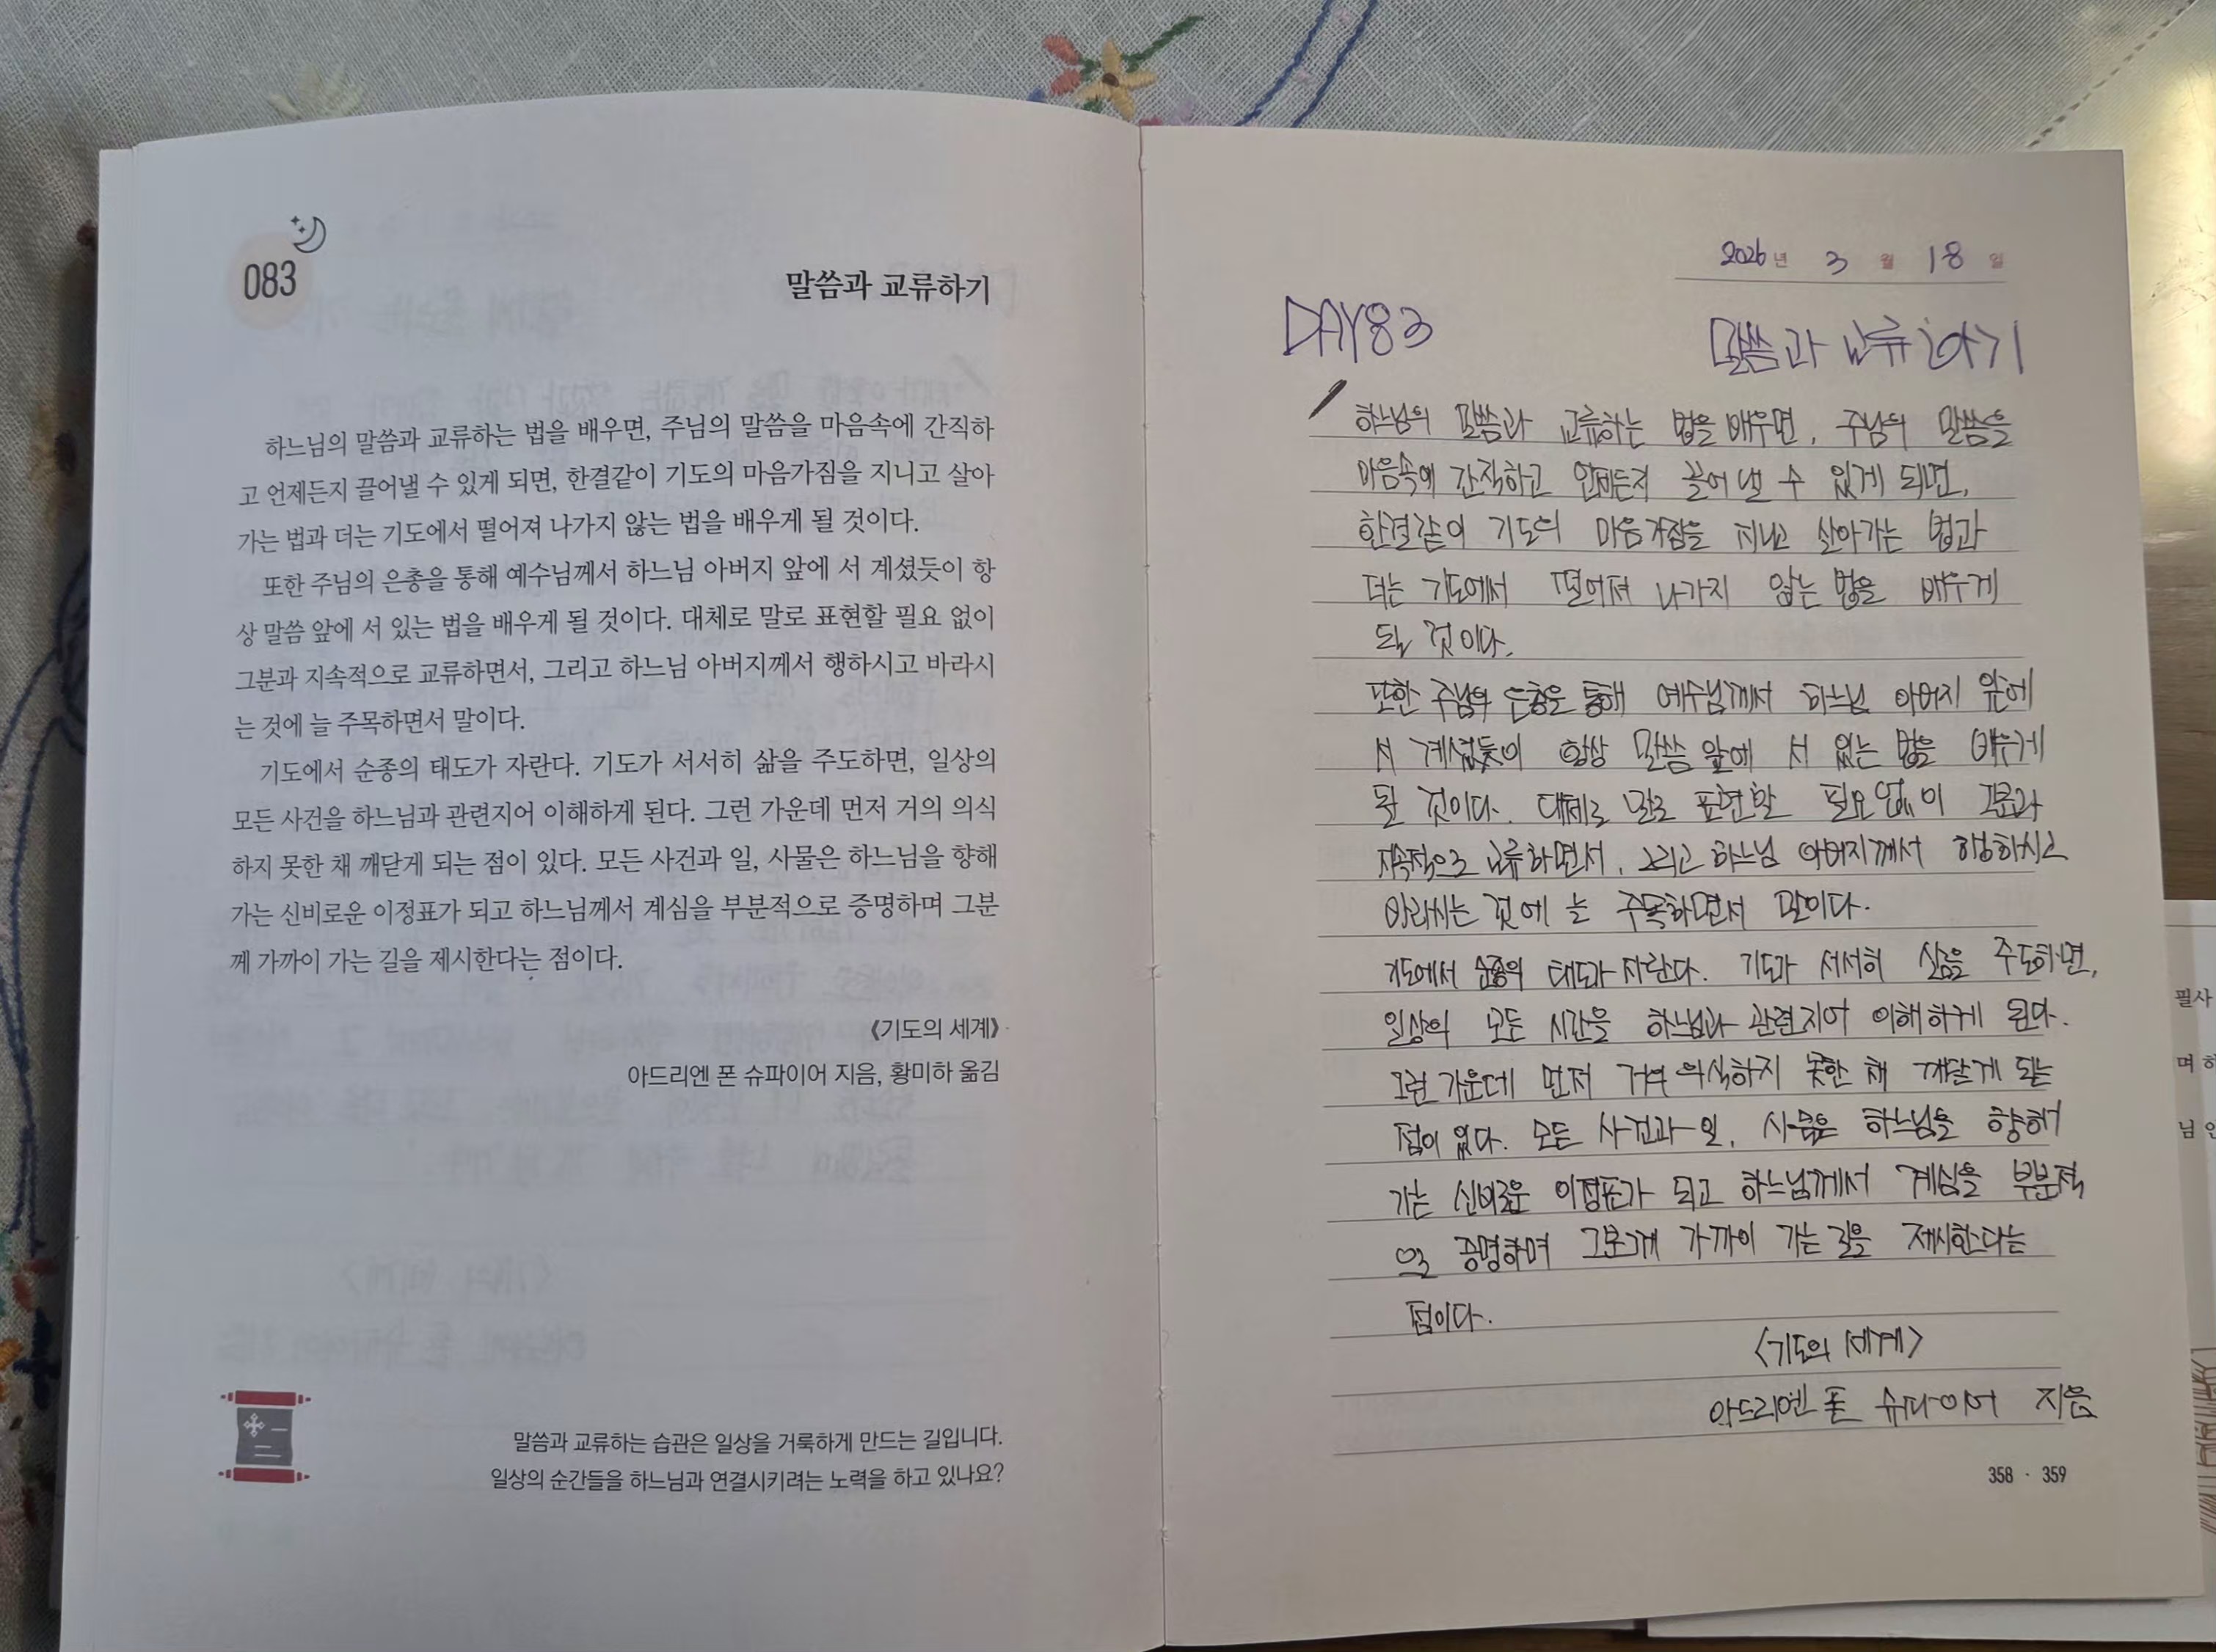 083
말씀과 교류하기
하느님의 말씀과 교류하는 법을 배우면, 주님의 말씀을 마음속에 간직하
고 언제든지 끌어낼 수 있게 되면, 한결같이 기도의 마음가짐을 지니고 살아
가는 법과 더는 기도에서 떨어져 나가지 않는 법을 배우게 될 것이다.
또한 주님의 은총을 통해 예수님께서 하느님 아버지 앞에 서 계셨듯이 항
상 말씀 앞에 서 있는 법을 배우게 될 것이다. 대체로 말로 표현할 필요 없이
그분과 지속적으로 교류하면서, 그리고 하느님 아버지께서 행하시고 바라시
는 것에 늘 주목하면서 말이다.
기도에서 순종의 태도가 자란다. 기도가 서서히 삶을 주도하면, 일상의
모든 사건을 하느님과 관련지어 이해하게 된다. 그런 가운데 먼저 거의 의식
하지 못한 채 깨닫게 되는 점이 있다. 모든 사건과 일, 사물은 하느님을 향해
가는 신비로운 이정표가 되고 하느님께서 계심을 부분적으로 증명하며 그분
께 가까이 가는 길을 제시한다는 점이다.
《기도의 세계》
아드리엔 폰 슈파이어 지음, 황미하 옮김
말씀과 교류하는 습관은 일상을 거룩하게 만드는 길입니다.
일상의 순간들을 하느님과 연결시키려는 노력을 하고 있나요?
2026년 3월 18일
DAY83
말씀과 교류하기
하느님의 말씀과 교류하는 법을 배우면, 주님의 말씀을
마음속에 간직하고 언제든지 끌어낼 수 있게 되면,
한결같이 기도의 마음가짐을 지니고 살아가는 법과
더는 기도에서 떨어져 나가지 않는 법을 배우게
될 것이다.
또한 주님의 은총을 통해 예수님께서 하느님 아버지 앞에
서 계셨듯이 항상 말씀 앞에 서 있는 법을 배우게
될 것이다. 대체로 말로 표현할 필요 없이 그분과
지속적으로 교류하면서, 그리고 하느님 아버지께서 행하시고
바라시는 것에 늘 주목하면서 말이다.
기도에서 순종의 태도가 자란다. 기도가 서서히 삶을 주도하면,
일상의 모든 시간을 하느님과 관련지어 이해하게 된다.
그런 가운데 먼저 거의 의식하지 못한 채 깨닫게 되는
점이 있다. 모든 사건과 일, 사물은 하느님을 향해
가는 신비로운 이정표가 되고 하느님께서 계심을 부분적
으로 증명하며 그분께 가까이 가는 길을 제시한다는
점이다.
〈기도의 세계〉
아드리엔 폰 슈파이어 지음
358 · 359
필사
며 하
님